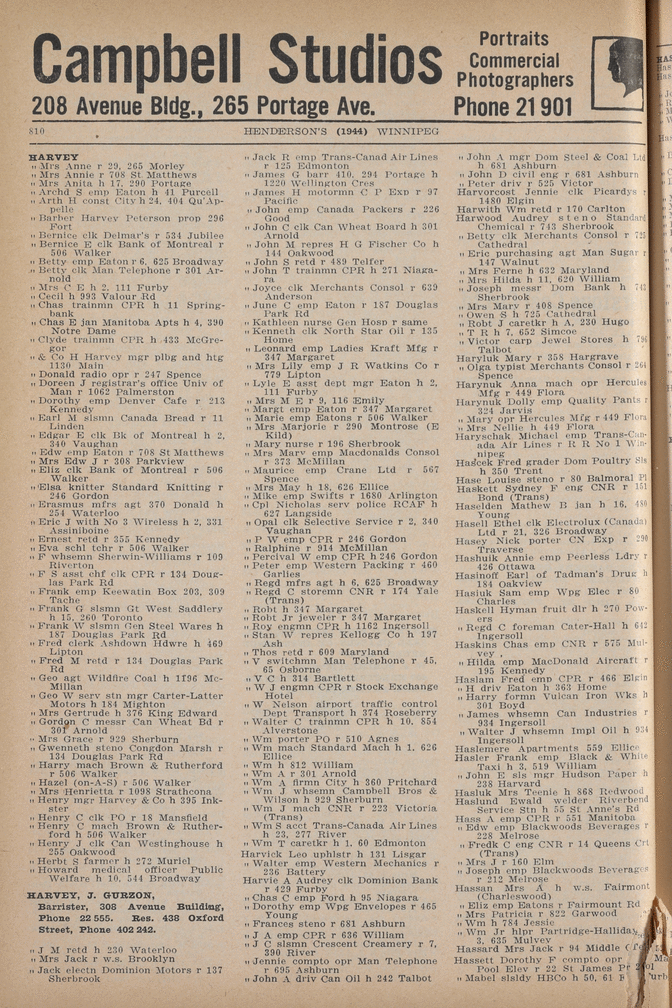 Campbell Studios
Portraits
Commercial
Photographers
208 Avenue Bldg., 265 Portage Ave.
Phone 21 901
810
HENDERSON'S (1944) WINNIPEG
HARVEY
" Mrs Anne r 29, 265 Morley
" Mrs Annie r 708 St Matthews
" Mrs Anita h 17, 290 Portage
" Archd S emp Eaton h 41 Purcell
" Arth H const City h 24, 404 Qu'Ap-
pelle
" Barber Harvey Peterson prop 296
Fort
" Bernice clk Delmar's r 534 Jubilee
" Bernice E clk Bank of Montreal r
506 Walker
" Betty emp Eaton r 6, 625 Broadway
" Betty clk Man Telephone r 301 Ar-
nold
" Mrs C E h 2, 111 Furby
" Cecil h 993 Valour Rd
" Chas trainmn CPR h 11 Spring-
bank
" Chas E jan Manitoba Apts h 4, 390
Notre Dame
" Clyde trainmn CPR h 433 McGre-
gor
" & Co H Harvey mgr plbg and htg
1130 Main
" Donald radio opr r 247 Spence
" Doreen J registrar's office Univ of
Man r 1062 Palmerston
" Dorothy emp Denver Cafe r 213
Kennedy
" Earl M slsmn Canada Bread r 11
Linden
" Edgar E clk Bk of Montreal h 2,
340 Vaughan
" Edw emp Eaton r 708 St Matthews
" Mrs Edw J r 308 Parkview
" Eliz clk Bank of Montreal r 506
Walker
" Elsa knitter Standard Knitting r
246 Gordon
" Erasmus mfrs agt 370 Donald h
254 Waterloo
" Eric J with No 3 Wireless h 2, 331
Assiniboine
" Ernest retd r 355 Kennedy
" Eva schl tchr r 506 Walker
" F whsemn Sherwin-Williams r 109
Riverton
" F S asst chf clk CPR r 134 Doug-
las Park Rd
" Frank emp Keewatin Box 203, 309
Tache
" Frank G slsmn Gt West Saddlery
h 15, 260 Toronto
" Frank W slsmn Gen Steel Wares h
187 Douglas Park Rd
" Fred clerk Ashdown Hdwre h 469
Lipton
" Fred M retd r 134 Douglas Park
Rd
" Geo agt Wildfire Coal h 1196 Mc-
Millan
" Geo W serv stn mgr Carter-Latter
Motors h 184 Mighton
" Mrs Gertrude h 376 King Edward
" Gordon C messr Can Wheat Bd r
301 Arnold
" Mrs Grace r 929 Sherburn
" Gwenneth steno Congdon Marsh r
134 Douglas Park Rd
" Harry mach Brown & Rutherford
r 506 Walker
" Hazel (on-A-S) r 506 Walker
" Mrs Henrietta r 1098 Strathcona
" Henry mgr Harvey & Co h 395 Ink-
ster
" Henry C clk PO r 18 Mansfield
" Henry C mach Brown & Ruther-
ford h 506 Walker
" Henry J elk Can Westinghouse h
255 Oakwood
" Herbt S farmer h 272 Muriel
" Howard medical officer Public
Welfare h 10, 544 Broadway
HARVEY, J. GURZON,
Barrister, 308 Avenue Building,
Phone 22 555. Res. 438 Oxford
Street, Phone 402 242.
" J M retd h 230 Waterloo
" Mrs Jack r w.s. Brooklyn
" Jack electn Dominion Motors r 137
Sherbrook
" Jack R emp Trans-Canad Air Lines
r 125 Edmonton
" James G barr 410, 294 Portage h
1220 Wellington Cres
" James H motormn C P Exp r 97
Pacific
" John emp Canada Packers r 226
Good
" John C clk Can Wheat Board h 301
Arnold
" John M repres H G Fischer Co h
144 Oakwood
" John S retd r 489 Telfer
" John T trainmn CPR h 271 Niaga-
ra
" Joyce clk Merchants Consol r 639
Anderson
" June C emp Eaton r 187 Douglas
Park Rd
" Kathleen nurse Gen Hosp r same
" Kenneth clk North Star Oil r 135
Home
" Leonard emp Ladies Kraft Mfg r
347 Margaret
" Mrs Lily emp J R Watkins Co r
779 Lipton
" Lyle E asst dept mgr Eaton h 2,
111 Furby
" Mrs M E r 9, 116 Emily
" Margt emp Eaton r 347 Margaret
" Marie emp Eatons r 506 Walker
" Mrs Marjorie r 290 Montrose (E
Kild)
" Mary nurse r 196 Sherbrook
" Mrs Mary emp Macdonalds Consol
r 373 McMillan
" Maurice emp Crane Ltd r 567
Spence
" Mrs May h 18, 626 Ellice
" Mike emp Swifts r 1680 Arlington
" Cpl Nicholas serv police RCAF h
627 Langside
" Opal clk Selective Service r 2, 340
Vaughan
" P W emp CPR r 246 Gordon
" Ralphine r 914 McMillan
" Percival W emp CPR h 246 Gordon
" Peter emp Western Packing r 460
Garlies
" Regd mfrs agt h 6, 625 Broadway
" Regd C storemn CNR r 174 Yale
(Trans)
" Robt h 347 Margaret
" Robt Jr jeweler r 347 Margaret
" Roy engmn CPR h 1162 Ingersoll
" Stan W repres Kellogg Co h 197
Ash
" Thos retd r 609 Maryland
" V switchmn Man Telephone r 45,
65 Osborne
" V C h 314 Bartlett
" W J engmn CPR r Stock Exchange
Hotel
" W Nelson airport traffic control
Dept Transport h 374 Roseberry
" Walter C trainmn CPR h 10, 854
Alverstone
" Wm porter PO r 510 Agnes
" Wm mach Standard Mach h 1, 626
Ellice
" Wm h 812 William
" Wm A r 301 Arnold
" Wm A firmn City h 360 Pritchard
" Wm J whsemn Campbell Bros &
Wilson h 929 Sherburn
" Wm J mach CNR r 223 Victoria
(Trans)
" Wm S acct Trans-Canada Air Lines
h 23, 277 River
" Wm T caretkr h 1, 60 Edmonton
Harvick Leo uphlstr h 131 Lisgar
" Walter emp Western Mechanics r
236 Battery
Harvie A Audrey clk Dominion Bank
r 429 Furby
" Chas C emp Ford h 95 Niagara
" Dorothy emp Wpg Envelopes r 465
Young
" Frances steno r 681 Ashburn
" J A emp CPR r 636 William
" J C slsmn Crescent Creamery r 7,
390 River
" Jennie compto opr Man Telephone
r 695 Ashburn
" John A driv Can Oil h 242 Talbot
" John A mgr Dom Steel & Coal Ltd
h 681 Ashburn
" John D civil eng r 681 Ashburn
" Peter driv r 525 Victor
Harvorcost Jennie clk Picardys r
1480 Elgin
Harwith Wm retd r 170 Carlton
Harwood Audrey steno Standard
Chemical r 743 Sherbrook
" Betty clk Merchants Consol r 725
Cathedral
" Eric purchasing agt Man Sugar r
147 Walnut
" Mrs Ferne h 632 Maryland
" Mrs Hilda h 11, 620 William
" Joseph messr Dom Bank h 743
Sherbrook
" Mrs Mary r 408 Spence
" Owen S h 725 Cathedral
" Robt J caretkr h A, 230 Hugo
" T R h 7, 652 Simcoe
" Victor carp Jewel Stores h 796
Talbot
Haryluk Mary r 358 Hargrave
" Olga typist Merchants Consol r 264
Spence
Harynuk Anna mach opr Hercules
Mfg r 449 Flora
Harynuk Dolly emp Quality Pants r
324 Jarvis
" Mary opr Hercules Mfg r 449 Flora
" Mrs Nellie h 449 Flora
Haryschak Michael emp Trans-Can-
ada Air Lines r R R No 1 Win-
nipeg
Hascek Fred grader Dom Poultry Sls
h 350 Trent
Hase Louise steno r 80 Balmoral Pl
Haskett Sydney F eng CNR r 151
Bond (Trans)
Haselden Mathew B jan h 16, 486
Young
Hasell Ethel clk Electrolux (Canada)
Ltd r 21, 326 Broadway
Hasey Nick porter CN Exp r 290
Traverse
Hashuik Annie emp Peerless Ldry r
426 Ottawa
Hasinoff Earl of Tadman's Drug h
184 Oakview
Hasiuk Sam emp Wpg Elec r 80
Charles
Haskell Hyman fruit dlr h 270 Pow-
ers
" Regd C foreman Cater-Hall h 642
Ingersoll
Haskins Chas emp CNR r 575 Mul-
vey
" Hilda emp MacDonald Aircraft r
195 Kennedy
Haslam Fred emp CPR r 466 Elgin
" H driv Eaton h 363 Home
" Harry formn Vulcan Iron Wks h
301 Boyd
" James whsemn Can Industries r
934 Ingersoll
" Walter J whsemn Impl Oil h 934
Ingersoll
Haslemere Apartments 559 Ellice
Hasler Frank emp Black & White
Taxi h 3, 519 William
" John E sls mgr Hudson Paper h
238 Harvard
Hasluk Mrs Teenie h 868 Redwood
Haslund Ewald welder Riverbend
Service Stn h 55 St Anne's Rd
Hass A emp CPR r 551 Manitoba
" Edw emp Blackwoods Beverages r
228 Melrose
" Fredk C eng CNR r 14 Queens Crt
(Trans)
" Mrs J r 160 Elm
" Joseph emp Blackwoods Beverages
r 212 Melrose
Hassan Mrs A h w.s. Fairmont
(Charleswood)
" Eliz emp Eatons r Fairmont Rd
" Mrs Patricia r 822 Garwood
" Wm h 784 Jessie
" Wm Jr hlpr Partridge-Halliday
3, 635 Mulvey
Hassard Mrs Jack r 94 Middle
Hassett Dorothy F compto opr
Pool Elev r 22 St James Pr
" Mabel slsldy HBCo h 50, 61